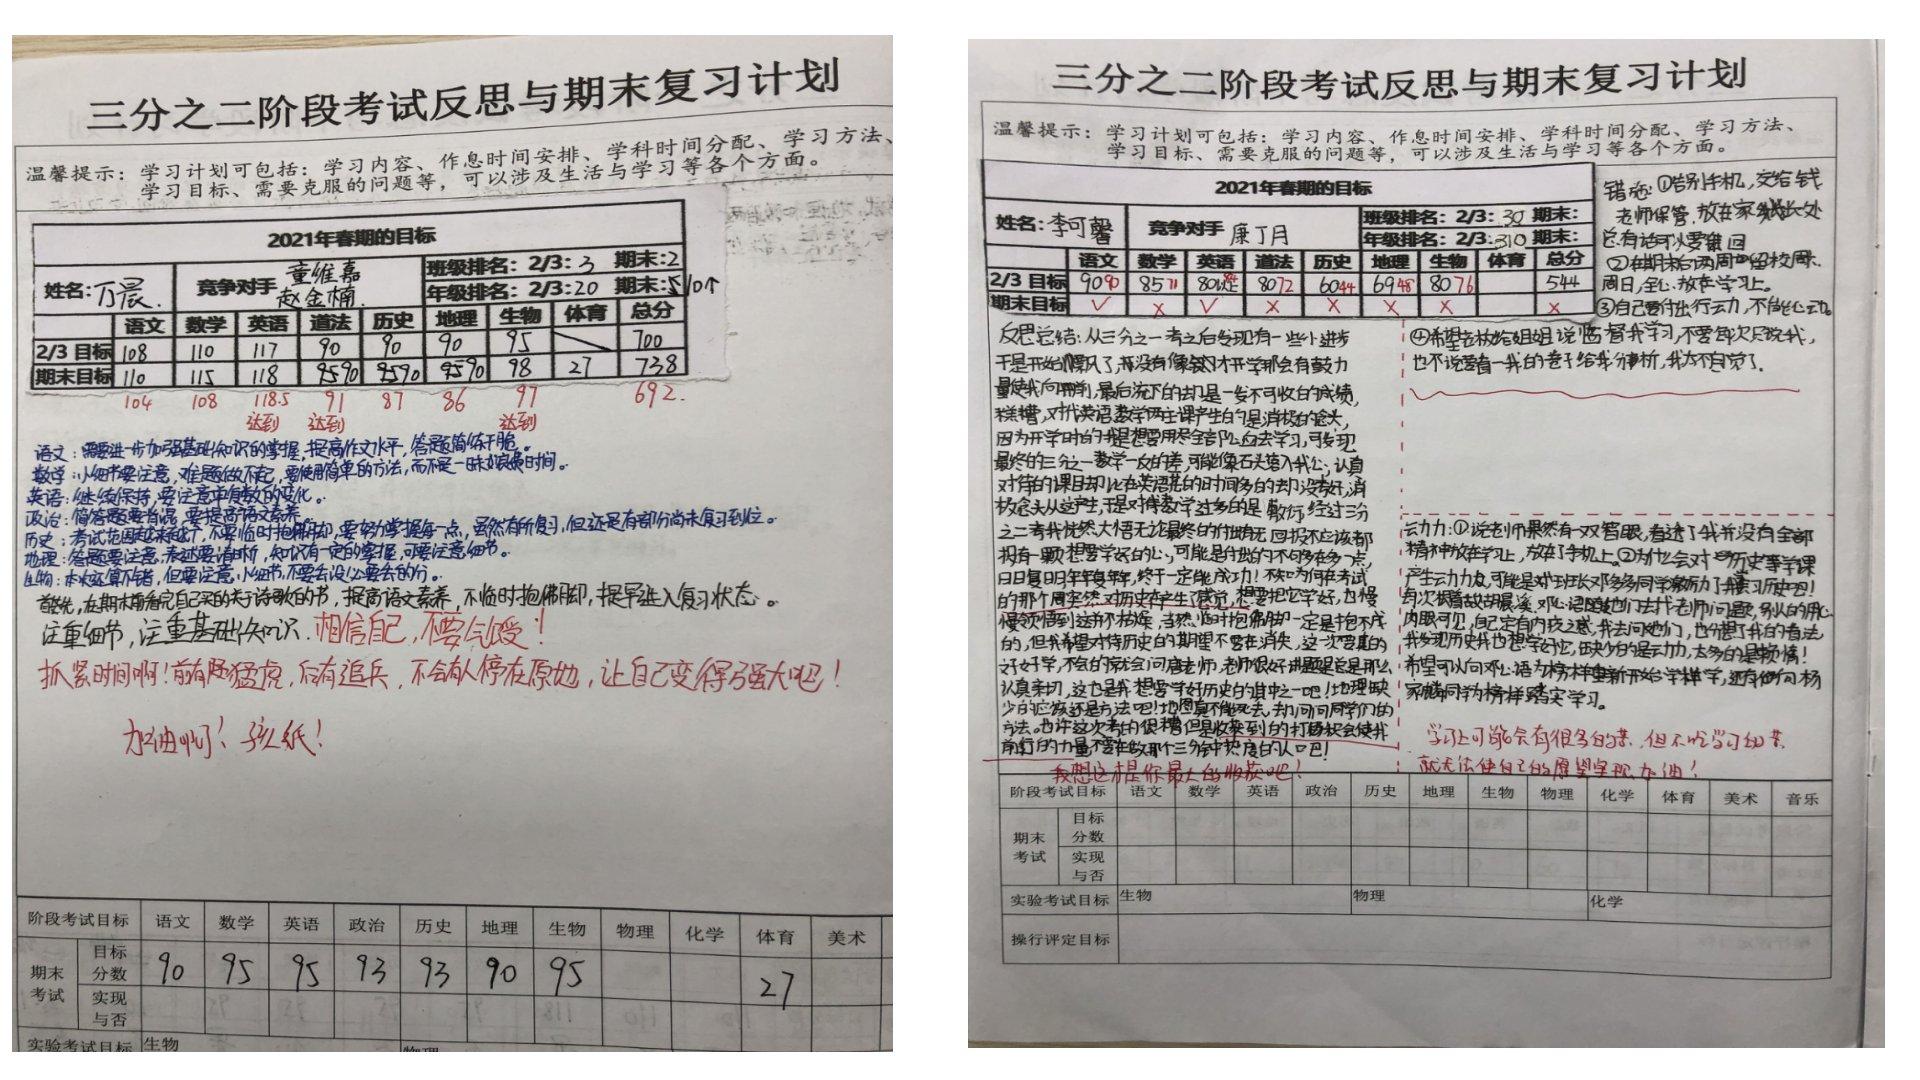 三分之二阶段考试反思与期末复习计划
温馨提示：学习计划可包括：学习内容、作息时间安排、学科时间分配、学习方法、
学习目标、需要克服的问题等，可以涉及生活与学习等各个方面。
2021年春期的目标
姓名：万晨 竞争对手 童维嘉 赵金楠 班级排名：2/3：3 期末：2
年级排名：2/3：20 期末：5 10个
语文 数学 英语 道法 历史 地理 生物 体育 总分
2/3 目标 108 110 117 90 90 90 95 700
期末目标 110 115 118 9590 9590 9590 98 27 738
104 108 118.5 91 87 86 97 692.
达到 达到 达到
语文：需要进一步加强基础知识的掌握，提高作文水平，答题简练干脆。
数学：小细节要注意，难题做不起，要使用简单的方法，而不是一味浪费时间。
英语：继续保持，要注意单复数的变化。
政治：简答题要背混，要提高语文素养
历史：考试范围越来越广，不要临时抱佛脚，要努力掌握每一点，虽然有所复习，但还是有部分尚未复习到位。
地理：答题要注意，表述要清晰，知识有一定的掌握，可要注意细节。
生物：本次还算不错，但要注意，小细节，不要丢没必要丢的分。
首先，在期末前看完自己买的关于诗歌的书，提高语文素养，不临时抱佛脚，提早进入复习状态。
注重细节，注重基础知识。相信自己，不要气馁！
抓紧时间啊！前有猛虎，后有追兵，不会有人停在原地，让自己变得强大吧！
加油啊！孩纸！
阶段考试目标 语文 数学 英语 政治 历史 地理 生物 物理 化学 体育 美术
期末考试 目标分数 90 95 95 93 93 90 95 27
实现与否
实验考试目标 生物 物理
三分之二阶段考试反思与期末复习计划
温馨提示：学习计划可包括：学习内容、作息时间安排、学科时间分配、学习方法、
学习目标、需要克服的问题等，可以涉及生活与学习等各个方面。
2021年春期的目标
姓名：李可馨 竞争对手 康丁月 班级排名：2/3：30 期末：
年级排名：2/3：310 期末：
语文 数学 英语 道法 历史 地理 生物 体育 总分
2/3 目标 9090 8571 80 8072 6044 6948 8076 544
期末目标 ✓ × ✓ × × × × ×
错施：①告别手机，交给钱
老师保管，放在家
②在期末后两周留校周末
周日，全心放在学习上。
③自己要付出行动力，不能
④希望 姐姐说监督我学习，不要每次只说我，
也不说要看一我的卷子给我分析，我太不自觉了。
反思总结：从三分之一考之后发现有一些小进步
于是开始 了，并没有像 开学那会有鼓力
量使我向前，最后流下的却是一发不可收的成绩，
糟糕，对我英语数学两主课产生的是消极的念头，
因为开学时的我是想要用尽全部心血去学习，可发现
最终的三分之一数学一反的差，可能像石头落入我心，认真
对待的课目却比在英语花的时间多的去却没有好，消
极念头从这产生，于是对待数学过多的是散行，经过三分
之二考我恍然大悟无论最终的付出有无回报，不应该都
拥有一颗想要学好的心，可能是付出的不够多在多一点，
日日复日年年复年年，终于一定能成功！不知为何在考试
的那个周突然对历史在产生了感觉，想要把它学好，也慢
慢领悟到 当然临时抱佛脚一定是抱不成
的，但我希望对待历史的期望不要在消失，这一次要真的
好好学，不会的就会问唐老师，老师很好讲题总是那么
认真亲切，这也是我想要学好历史的其中之一吧！地理缺
少的应该还是方法吧！地图真不能死去，去问问同学们的
方法，也许这次考的很糟但是收来到的打击会使我
前行的力量不要在做那个三分钟热度的人口吧！
我想这才是你最大的收获吧！
云动力：①说老师果然有一双智眼，看透了我并没有全部
精神放在学习上，放在了手机上。②为什么会对历史等学课
产生云动力点，可能是对班长邓多多同学激励了我 习历史吧！
每次根着故胡晨溪，邓心语随他们去找老师问题，别人的用心
肉眼可见，自己定有内疚之感，我去问她们，也分想了我的看法
我发现历史我也想学好它，但缺少的是云动力，太多的是赖情！
希望可以向邓心语为榜样重新开始学样学，还有向杨
家麟同学为榜样踏实学习。
学习上可能会有很多的苦，但不吃学习的苦
就无法使自己的愿望实现，加油！
阶段考试目标 语文 数学 英语 政治 历史 地理 生物 物理 化学 体育 美术 音乐
期末考试 目标分数
实现与否
实验考试目标 生物 物理 化学
操行评定目标